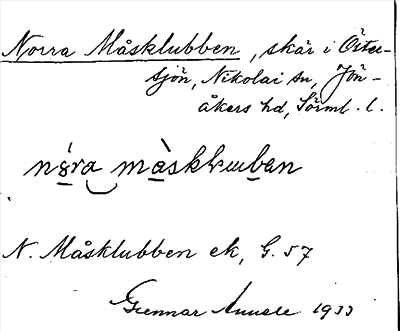 Norra Måsklubben, skär i Öster-
sjön, Nikolai sn, Jön-
åkers hd, Sörml. l.
N. Måsklubben ek, G. 57
Gunnar 1933